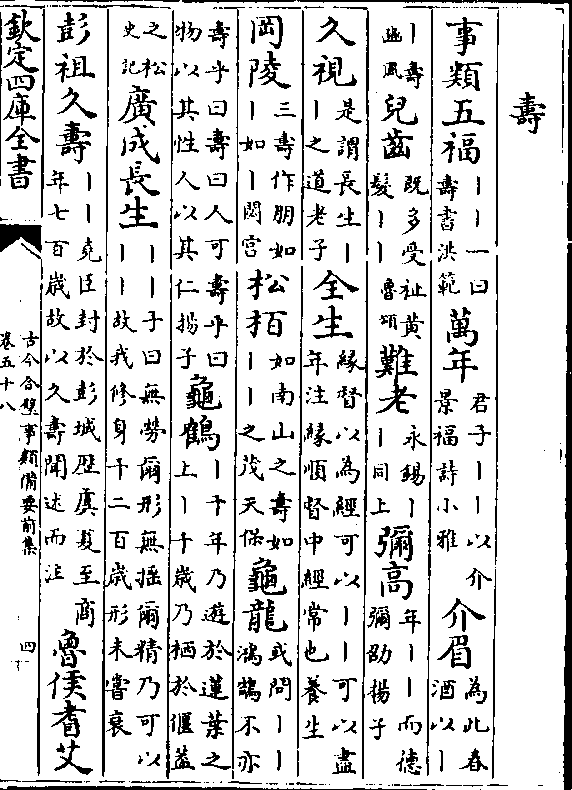 壽
事類五福丨丨一曰
壽書洪範萬年君子丨丨以介
景福詩小雅介眉為此春
酒以丨
丨壽
豳風兒齒既多受祉黃
髮丨丨魯頌難老永錫丨
丨同上彌高年丨丨而德
彌劭揚子
久視是謂長生丨
丨之道老子全生緣督以為經可以丨丨可以盡
年注緣順督中經常也養生
岡陵三壽作朋如
丨如丨閟宮松栢如南山之壽如
丨丨之茂天保龜龍或問丨丨
鴻鵠不亦
壽乎曰壽曰人可壽乎曰
物以其性人以其仁揚子龜鶴丨千年乃遊於蓮葉之
上丨千歳乃栖於偃葢
之松
史記廣成長生丨丨子曰無勞爾形無揺爾精乃可以
丨丨故我修身千二百歳形未嘗衰
彭祖久壽丨丨堯臣封於彭城歴虞夏至商
年七百歳故以久壽聞述而注魯侯耆艾
欽定四庫全書
古今合璧事類備要前集
卷五十八
四